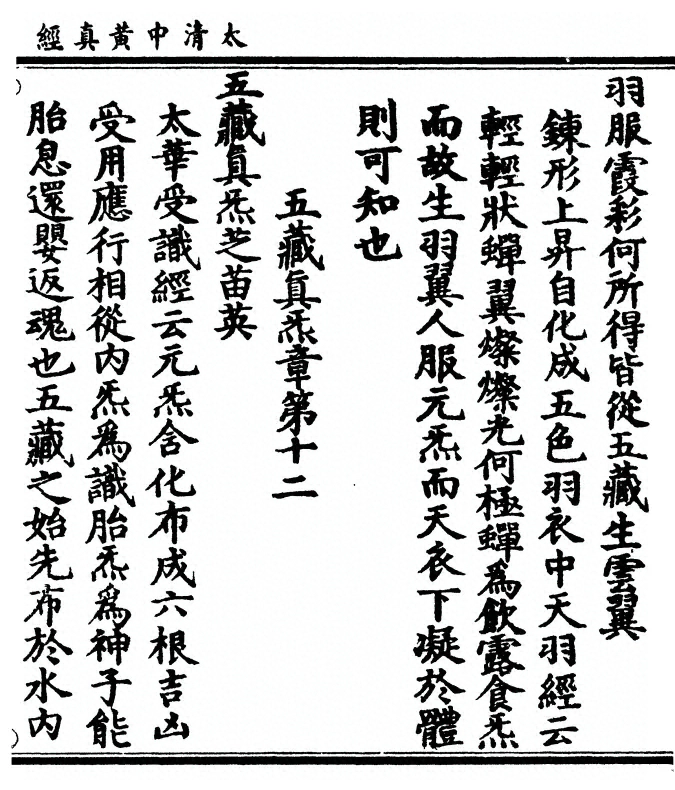 太清中黃真經
羽服霞彩何所得皆從五藏生雲翼
鍊形上昇自化成五色羽衣中天羽經云
輕輕狀蟬翼燦燦光何極蟬為飲露食炁
而故生羽翼人服元炁而天衣下凝於體
則可知也
五藏真炁章第十二
五藏真炁芝苗英
太華受識經云元炁含化布成六根吉凶
受用應行相從內炁為識胎炁為神子能
胎息還嬰返魂也五藏之始先布於水內